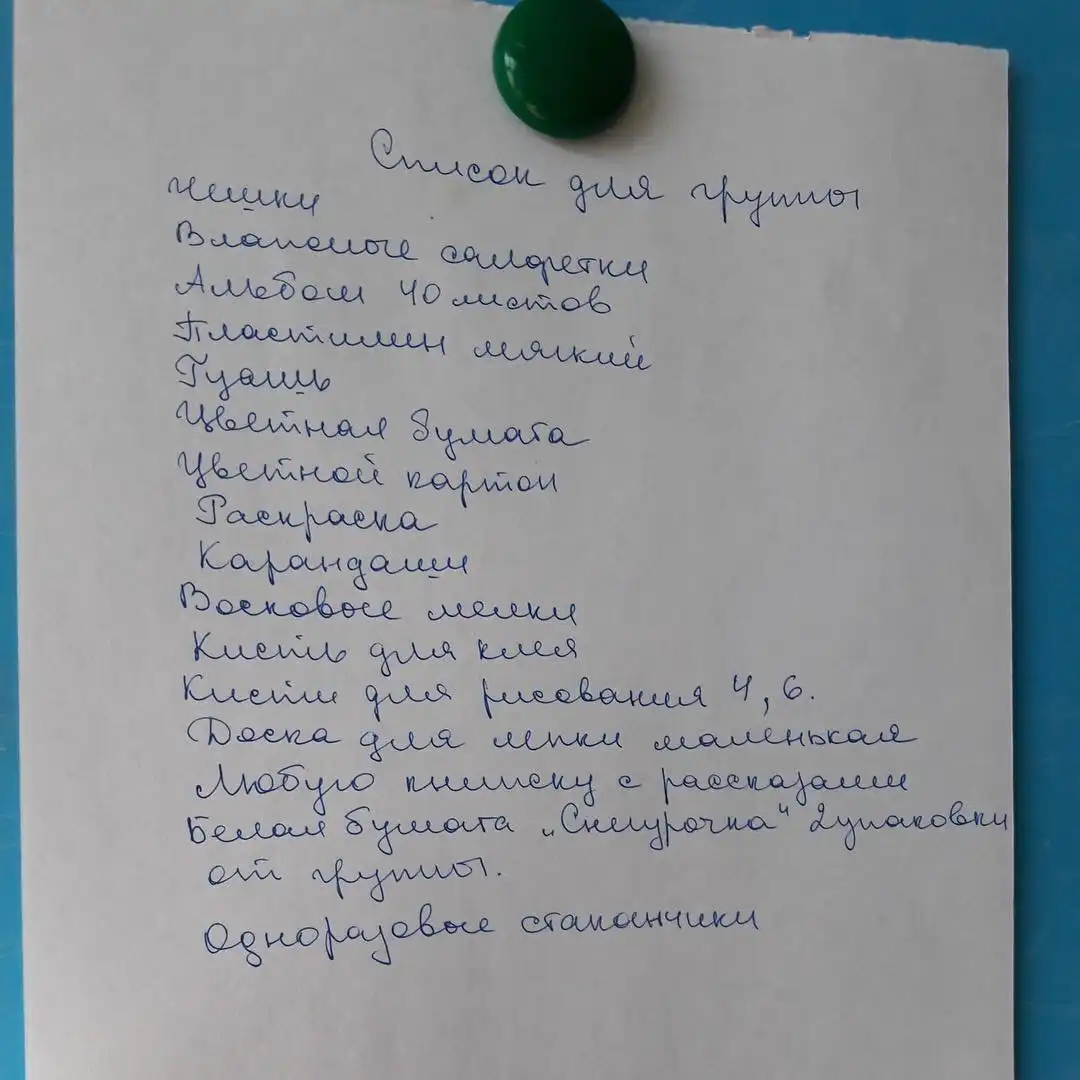 Список для группы
Чешки
Влапсные салфетки
Альбом 40 листов
Пластилин мягкий
Гуашь
Цветная бумага
Цветной картон
Раскраска
Карандаши
Восковые мелки
Кисть для клея
Кисти для рисования 4, 6.
Доска для лепки маленькая
Любую книжску с рассказами
Белая бумага „Снегурочка" 2упаковки
от группы.
Одноразовые стаканчики